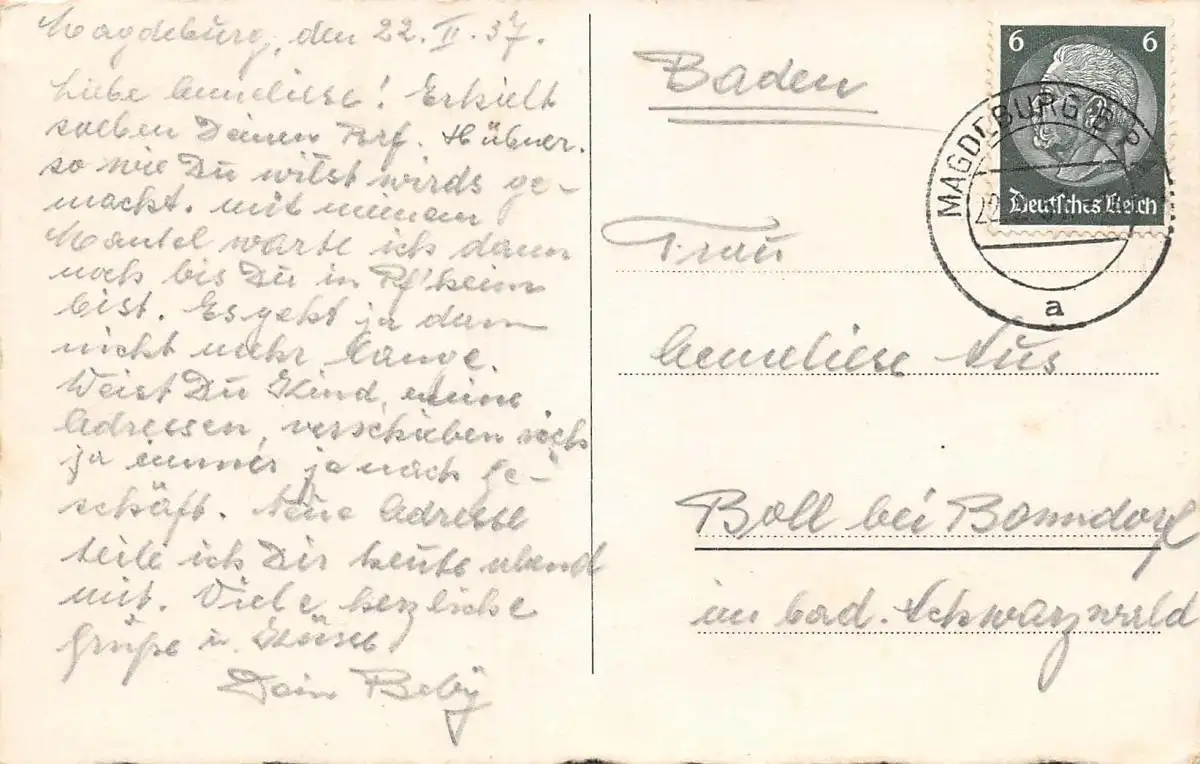 Magdeburg, den 22. II. 37.
Liebe Anneliese! Erhielt
soeben Deinen Brf. Hübner.
so wie Du wilst wirds ge-
macht. mit meinem
Mantel warte ich dann
noch bis Du in Pf'heim
bist. Es geht ja dann
nicht mehr lange.
Weist Du Kind, meine
Adressen, verschieben sich
ja immer je nach Ge-
schäft. Neue Adresse
teile ich Dir heute abend
mit. Viele herzliche
Grüße u. Küsse
Dein Beby
Baden
Frau
Anneliese
Boll bei Bonndorf
im bad. Schwarzwald
6 6
Deutsches Reich
MAGDEBURG
22
a